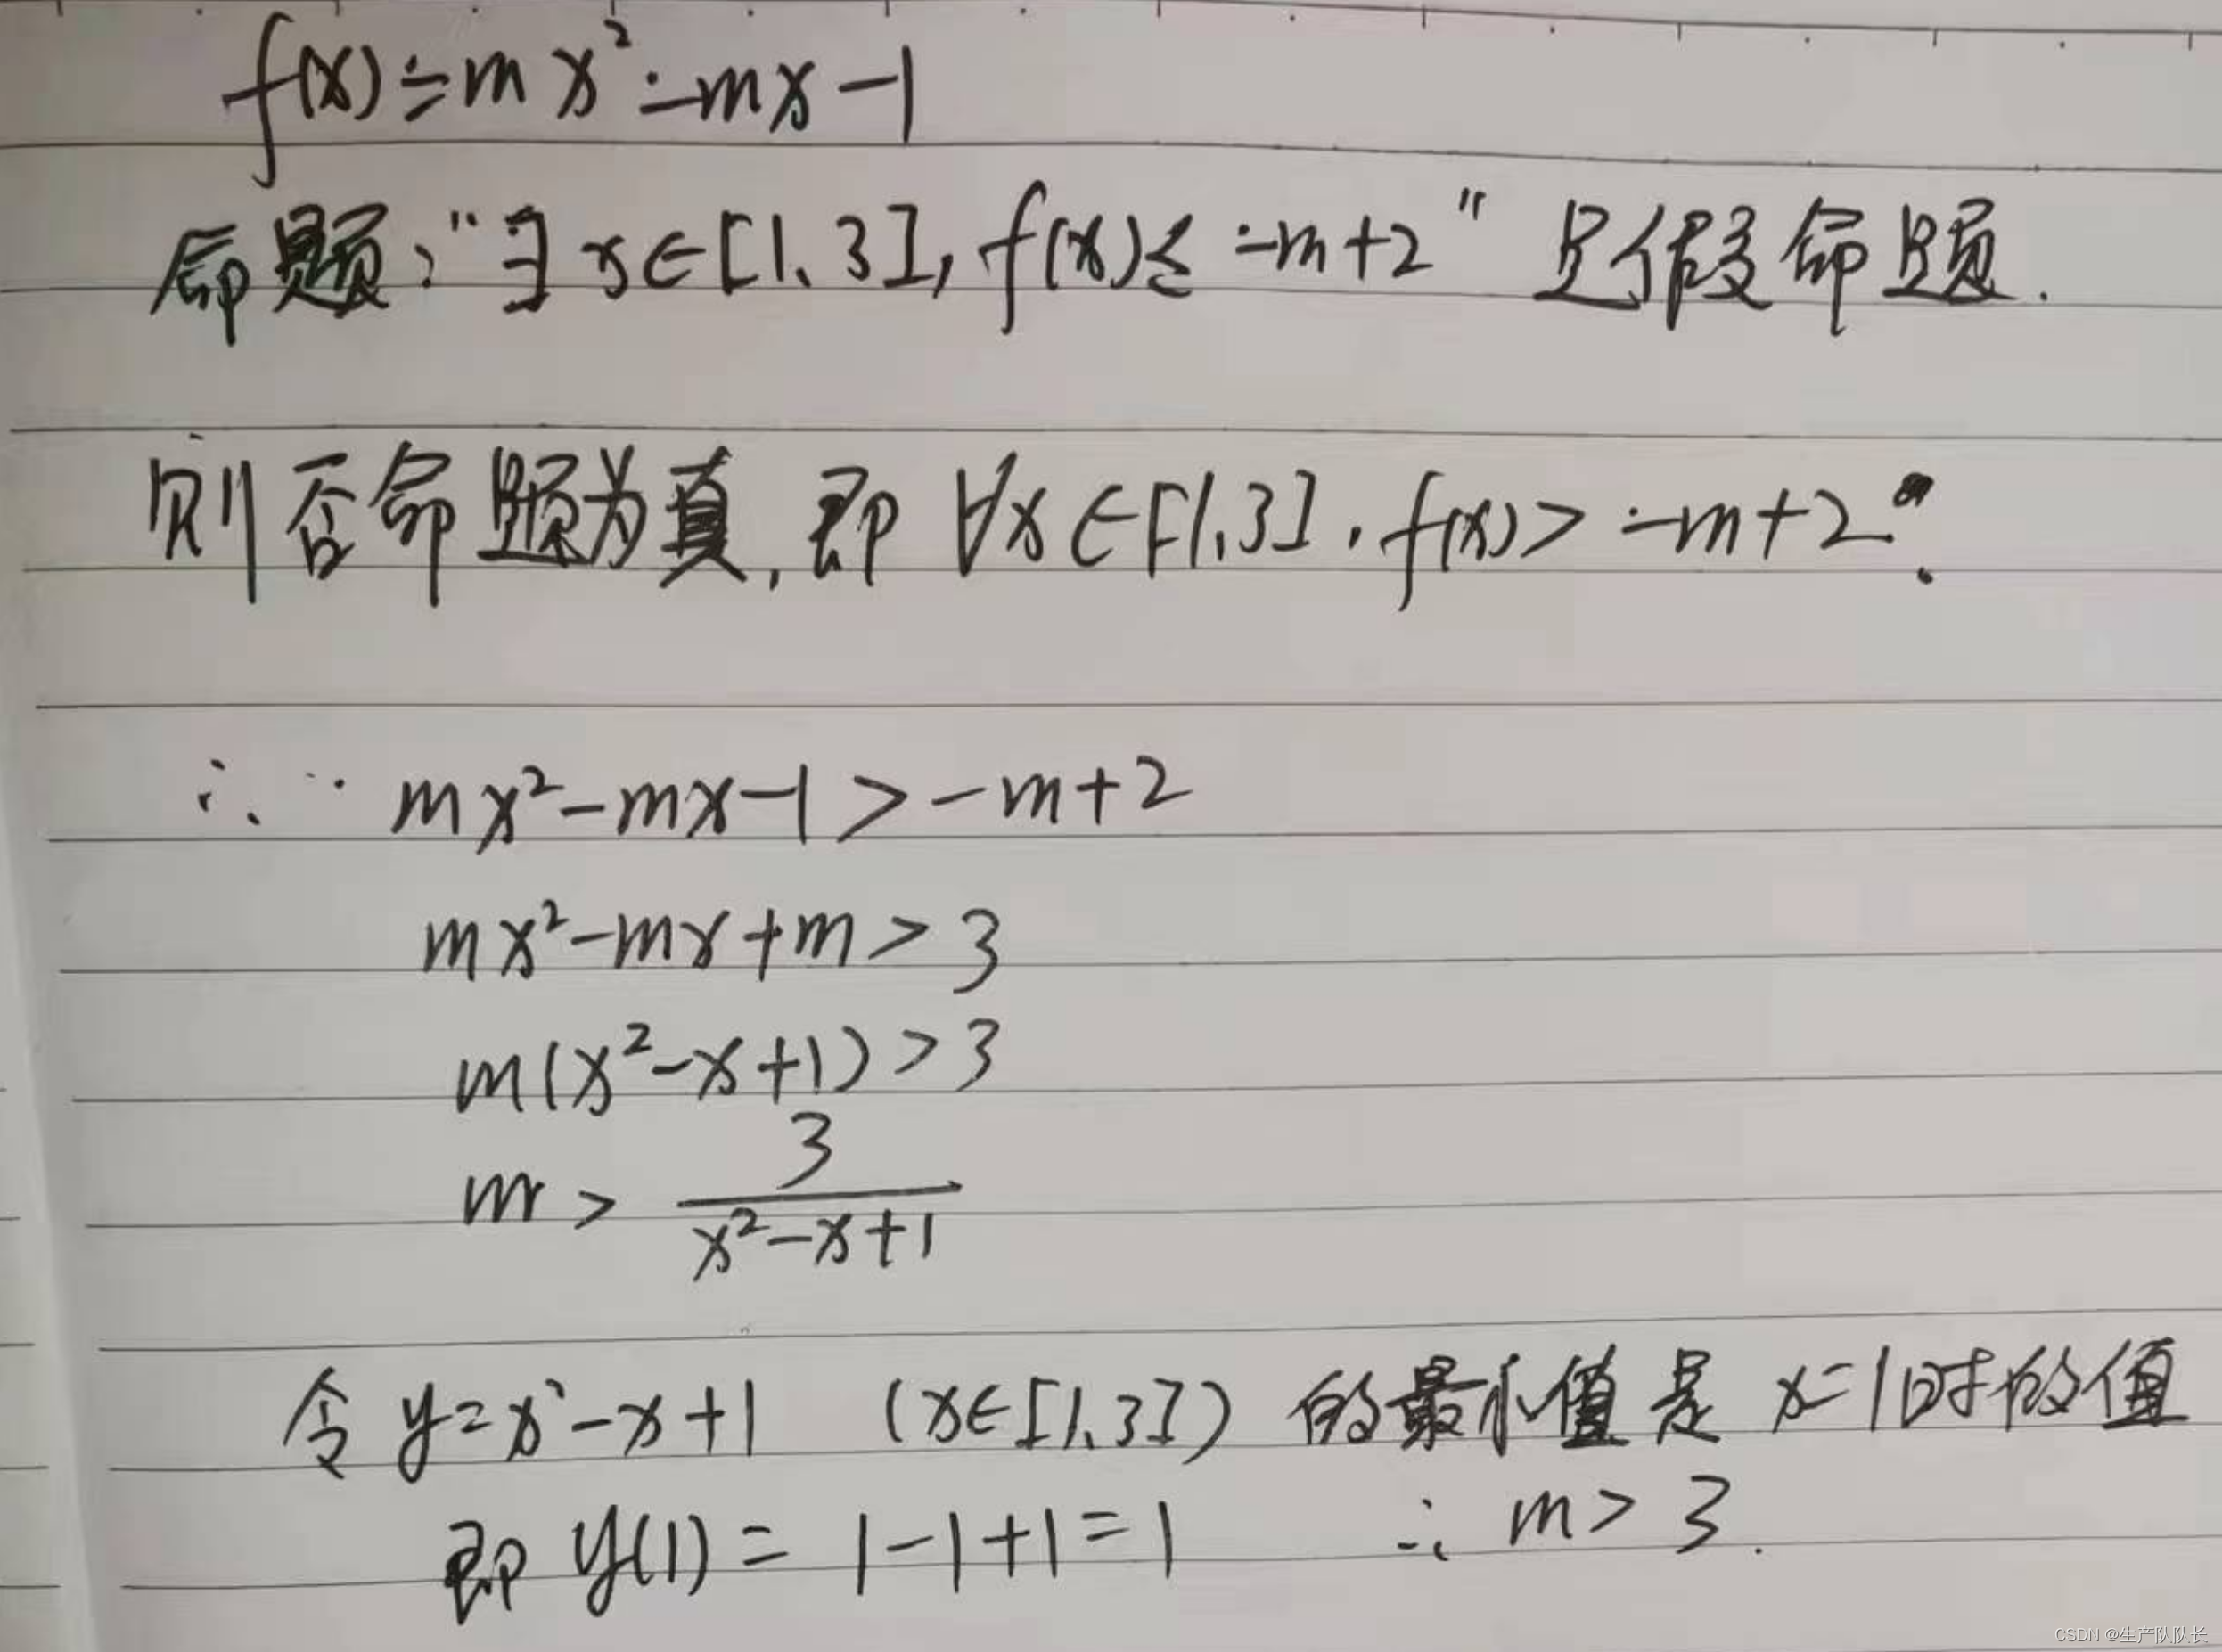 f(x)=mx²-mx-1
命题:"∃x∈[1、3],f(x)≤-m+2"是假命题.
则否命题为真,即∀x∈[1,3],f(x)>-m+2".
∴ mx²-mx-1>-m+2
mx²-mx+m>3
m(x²-x+1)>3
m>3/(x²-x+1)
令y=x²-x+1 (x∈[1、3])的最小值是x=1时的值
即y(1)=1-1+1=1 ∴m>3.
CSDN @生产队队长